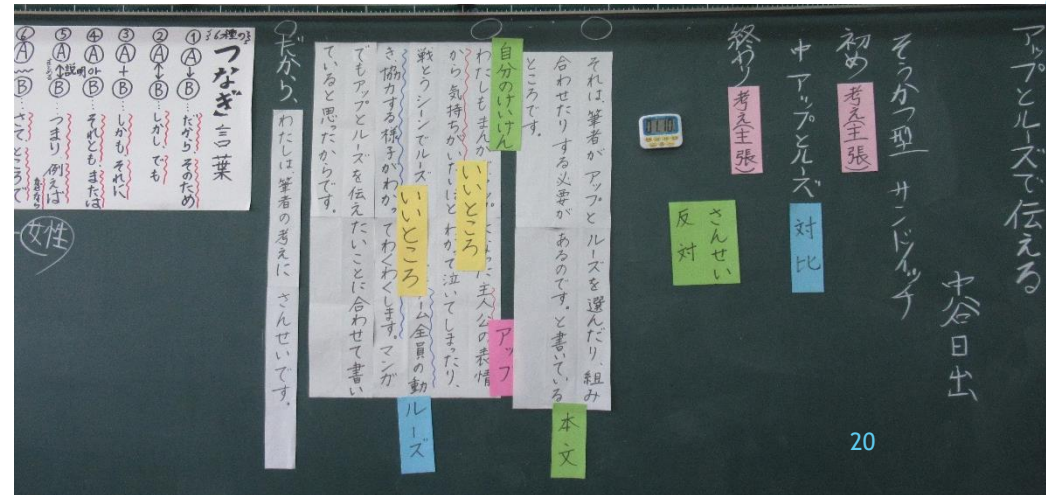 アップとルーズで伝える
中谷日出
そうかつ型 サンドイッチ
初め 考え(主張)
中 アップとルーズ 対比
終わり 考え(主張)
さんせい
反対
それは、筆者が アップと ルーズを選んだり、組み
合わせたり する必要が あるのです。と書いている
ところです。
本文
自分のけいけん
アップ
わたしもまんが 主人公の表情
から気持ちがいたいほど わかって泣いてしまったり、
いいところ
戦とうシーンでルーズ ーム全員の動
いいところ
き協力する様子がわかってわくわくします。マンガ
ルーズ
でもアップとルーズを伝えたいことに合わせて書い
ていると思ったからです。
だから、わたしは筆者の考えに さんせいです。
6種の
つなぎ言葉
①A→B…だから そのため
②A↔B…しかし でも
③A+B…しかも それに
④AorB…それとも または
⑤A説明B…つまり 例えば
⑥A B…さて ところで
女性
20